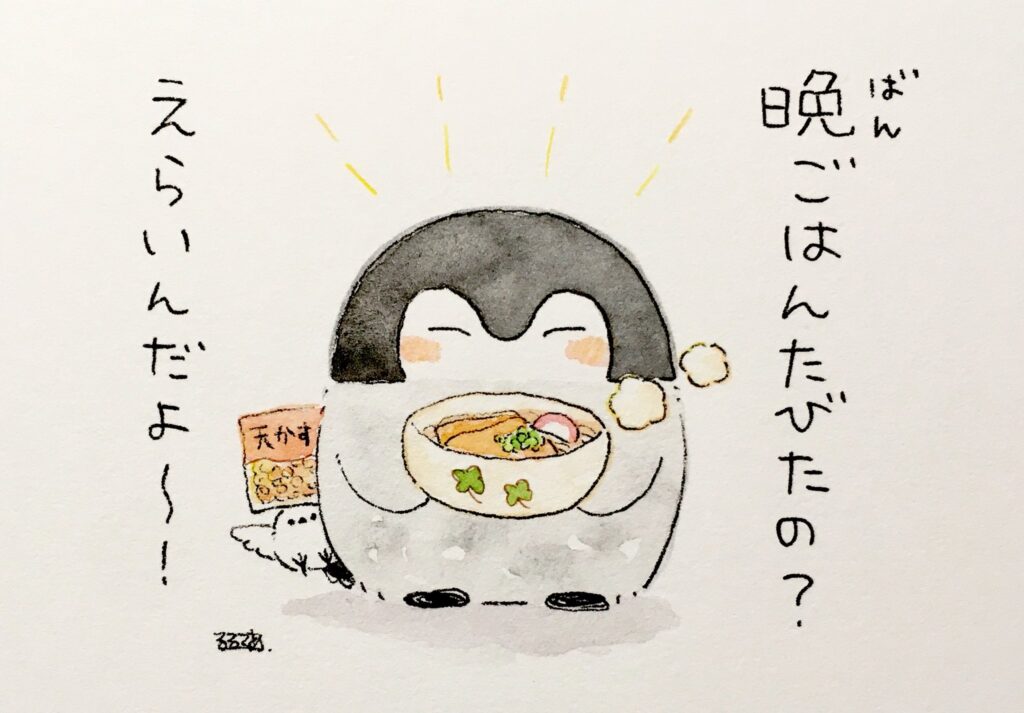 晩ごはんたびたの?
ばん
えらいんだよ~!
天かす
るるてあ.